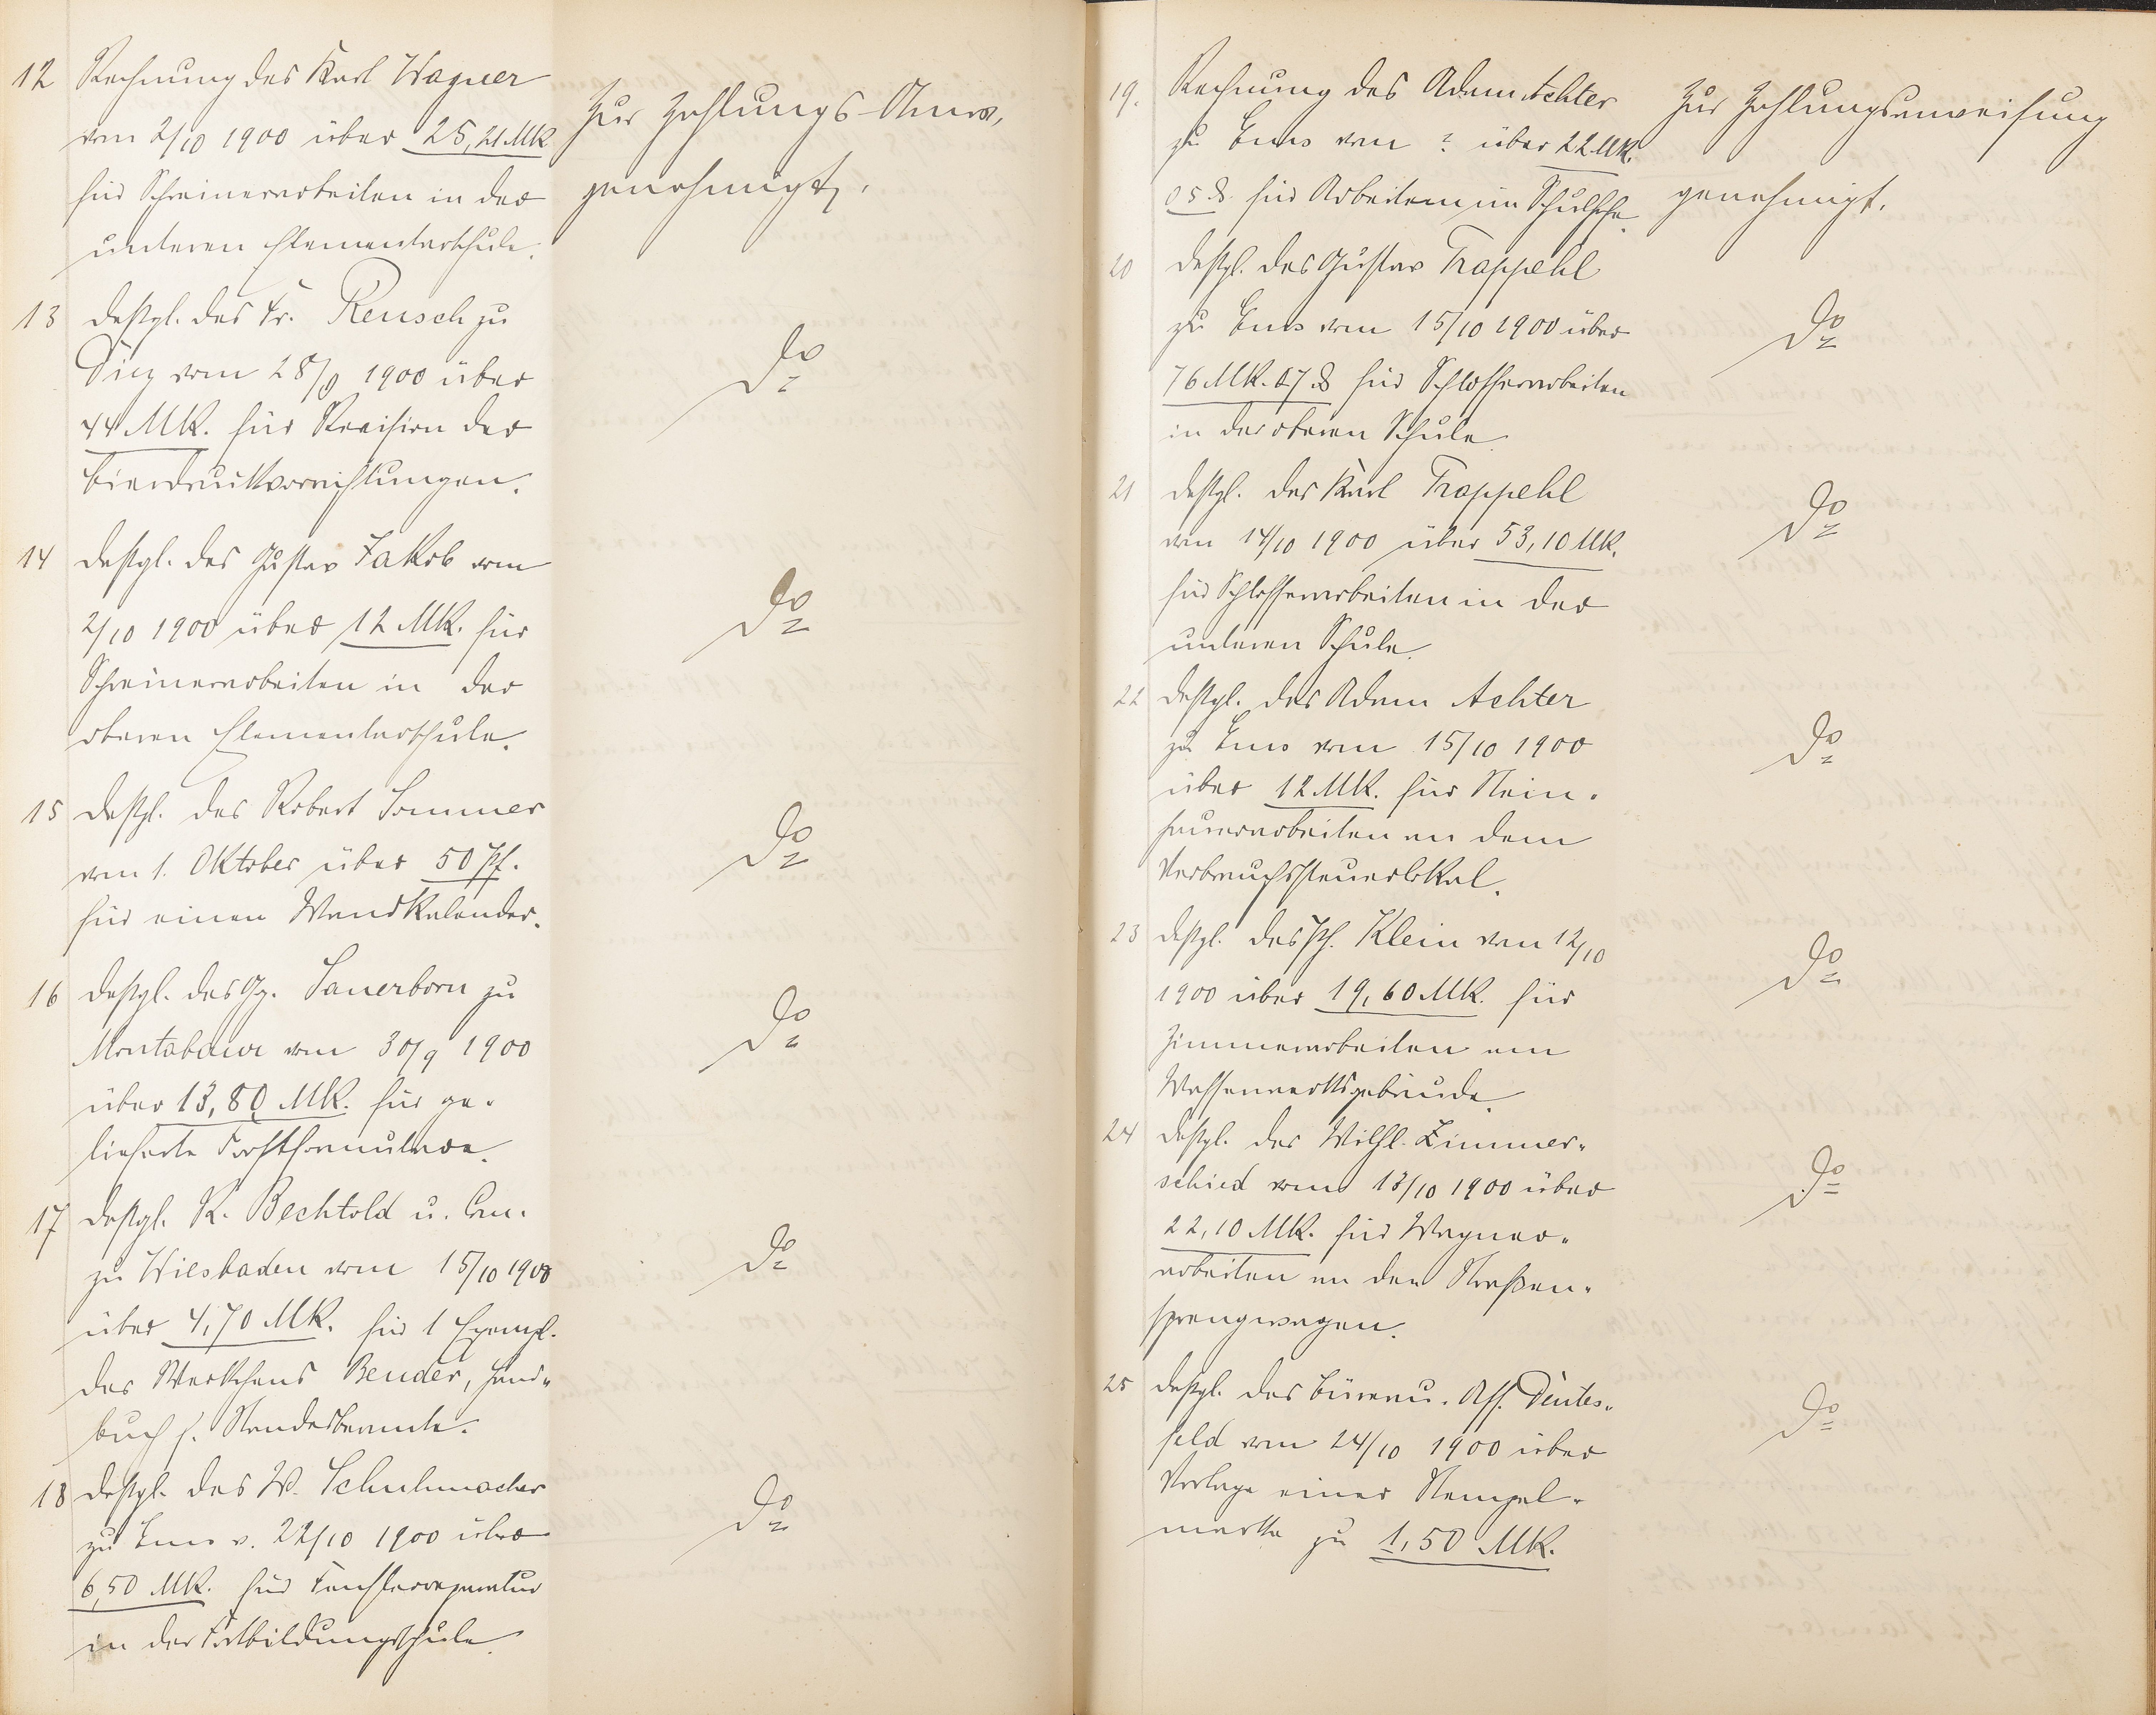 12 Rechnung des Karl Wagner
vom 2/10 1900 über 25,21 MK
für Schreinerarbeiten in der
unteren Elementarschule.
Zur Zahlungs-Anw.
genehmigt.
13 dessgl. des Fr. Reusch zu
Diez vom 28/9 1900 über
44 MK. für Revision der
Bierdruckvorrichtungen.
do
14 dessgl. des Gustav Jakob vom
2/10 1900 über 12 MK. für
Schreinerarbeiten in der
oberen Elementarschule.
do
15 dessgl. des Robert Sommer
vom 1. Oktober über 50 Pf.
für einen Wandkalender.
do
16 dessgl. des Gg. Sauerborn zu
Montabaur vom 30/9 1900
über 13,80 MK. für ge-
lieferte Forstformulare.
do
17 dessgl. R. Bechtold u. Com.
zu Wiesbaden vom 15/10 1900
über 4,70 MK. für 1 Exempl.
des Werkchens Bender, Hand-
buch f. Standesbeamte.
do
18 dessgl. des W. Schuhmacher
zu Ems v. 22/10 1900 über
6,50 MK. für Fensterreparatur
in der Fortbildungsschule.
do
19. Rechnung des Adam Achter
zu Ems vom ? über 22 MK.
05 ₰. für Arbeiten im
Zur Zahlungsanweisung
genehmigt.
20 dessgl. des Gustav Trappehl
zu Ems vom 15/10 1900 über
76 MK. 07 ₰ für Schlosserarbeiten
in der oberen Schule
do
21 dessgl. des Karl Trappehl
vom 14/10 1900 über 53,10 MK.
für Schlosserarbeiten in der
unteren Schule.
do
22 dessgl. des Adam Achter
zu Ems vom 15/10 1900
über 12 MK. für Stein-
hauerarbeiten an dem
Verbrauchssteuerlokal.
do
23 dessgl. des Ph. Klein vom 12/10
1900 über 19,60 MK. für
Zimmerarbeiten am
Wasserwerksgebäude.
do
24 dessgl. des Wilh. Zimmer-
schied vom 13/10 1900 über
22,10 MK. für Wagner-
arbeiten an den Straßen-
sprengwagen.
do
25 dessgl. des Büreau-Ass. Dentes-
feld vom 24/10 1900 über
Vorlage einer Stempel-
marke zu 1,50 MK.
do